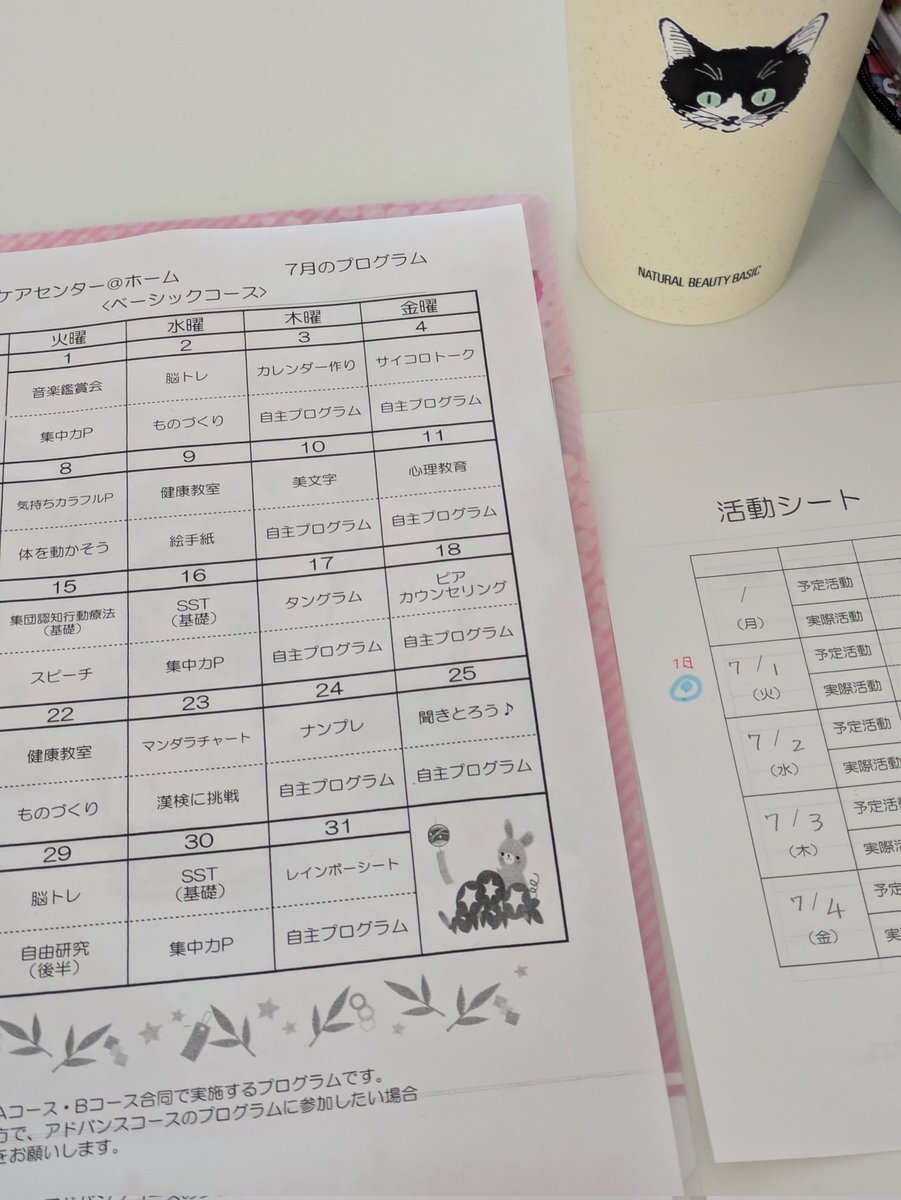 NATURAL BEAUTY BASIC
ケアセンター@ホーム 7月のプログラム
<ベーシックコース>
火曜 水曜 木曜 金曜
1 2 3 4
音楽鑑賞会 脳トレ カレンダー作り サイコロトーク
集中力P ものづくり 自主プログラム 自主プログラム
8 9 10 11
気持ちカラフルP 健康教室 美文字 心理教育
体を動かそう 絵手紙 自主プログラム 自主プログラム
15 16 17 18
集団認知行動療法
(基礎)
SST
(基礎)
タングラム
ピア
カウンセリング
スピーチ 集中力P 自主プログラム 自主プログラム
22 23 24 25
健康教室 マンダラチャート ナンプレ 聞きとろう♪
ものづくり 漢検に挑戦 自主プログラム 自主プログラム
29 30 31
脳トレ
SST
(基礎)
レインボーシート
自由研究
(後半)
集中力P 自主プログラム
Aコース・Bコース合同で実施するプログラムです。
方で、アドバンスコースのプログラムに参加したい場合
をお願いします。
活動シート
/
(月)
予定活動
実際活動
1日
7/1
(火)
予定活動
実際活動
7/2
(水)
予定活動
実際活動
7/3
(木)
予定活
実際活
7/4
(金)
予定
実